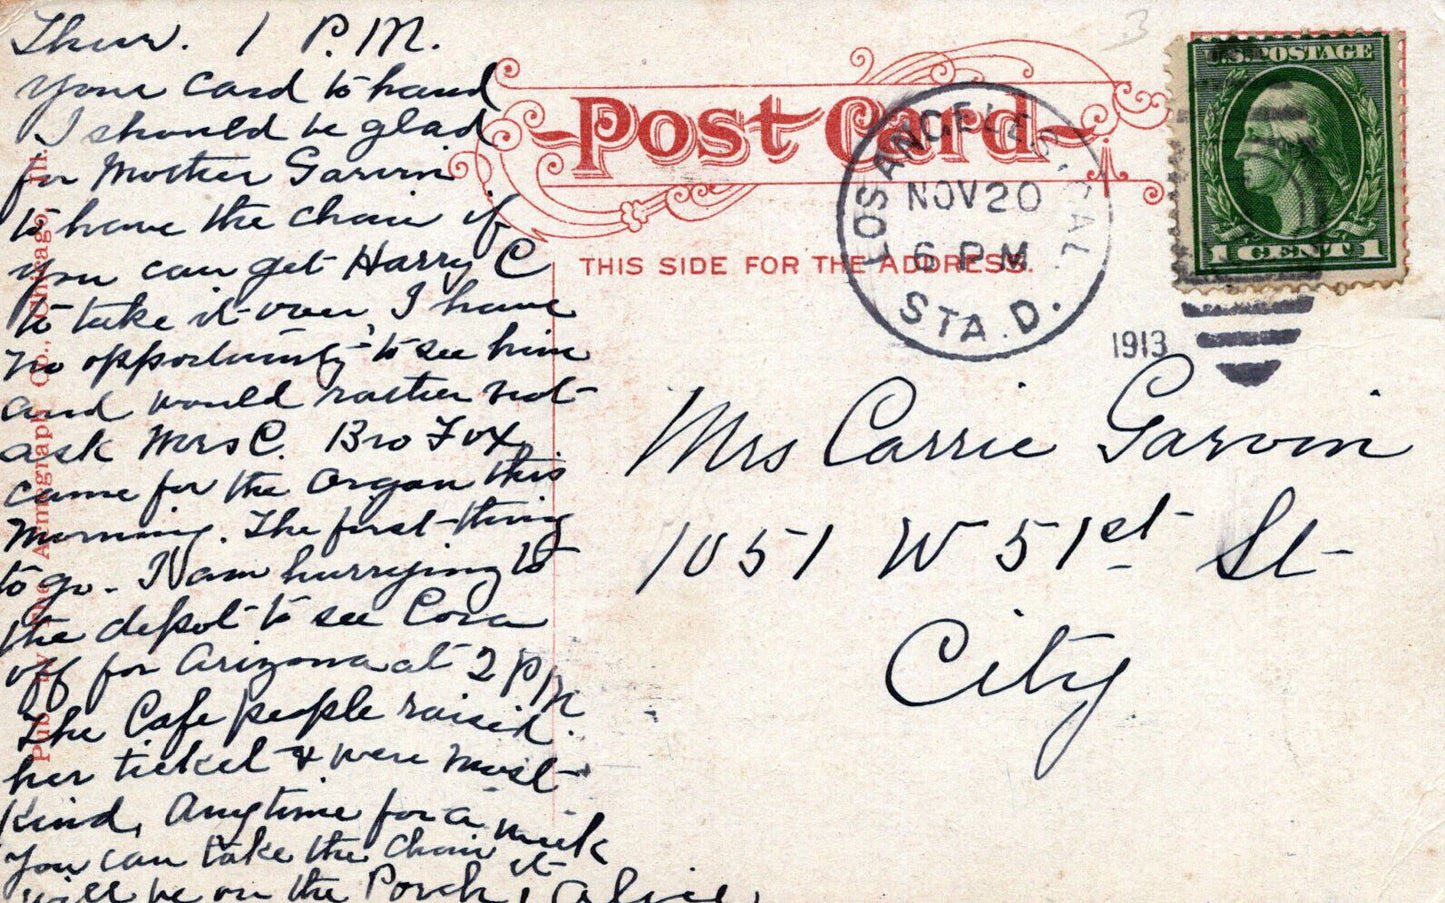 Thur. 1 P.M.
Your card to hand
I should be glad
for Mother Garvin
to have the chair if
you can get Harry C
to take it over I have
no opportunity to see him
and would rather not
ask Mrs C. Bro Fox
came for the organ this
morning. The first thing
to go. I am hurrying to
the depot to see Cora
off for Arizona at 2 PM
The Cafe people raised
her ticket & were most
kind. Anytime for a week
you can take the chair it
will be on the Porch, Alice
Pub. by The Acmegraph Co., Chicago, Ill.
Post Card
THIS SIDE FOR THE ADDRESS.
LOS ANGELES, CAL.
NOV 20
6 PM
STA. D.
1913
U.S. POSTAGE
1 CENT 1
3
Mrs Carrie Garvin
1051 W 51st St
City